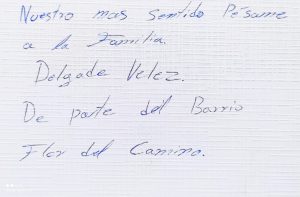 Nuestro mas sentido Pésame
a la Familia.
Delgade Velez.
De parte del Barrio
Flor del Camino.